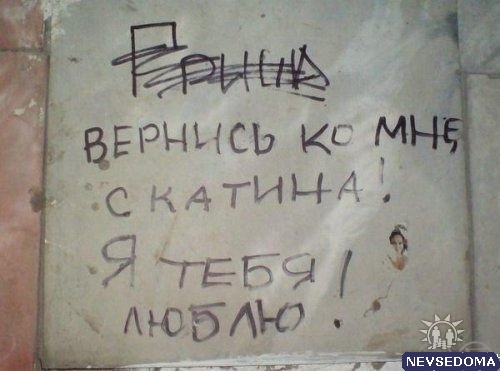 ВЕРНИСЬ КО МНЕ
СКАТИНА!
Я ТЕБЯ
ЛЮБЛЮ!
NEVSEDOMA